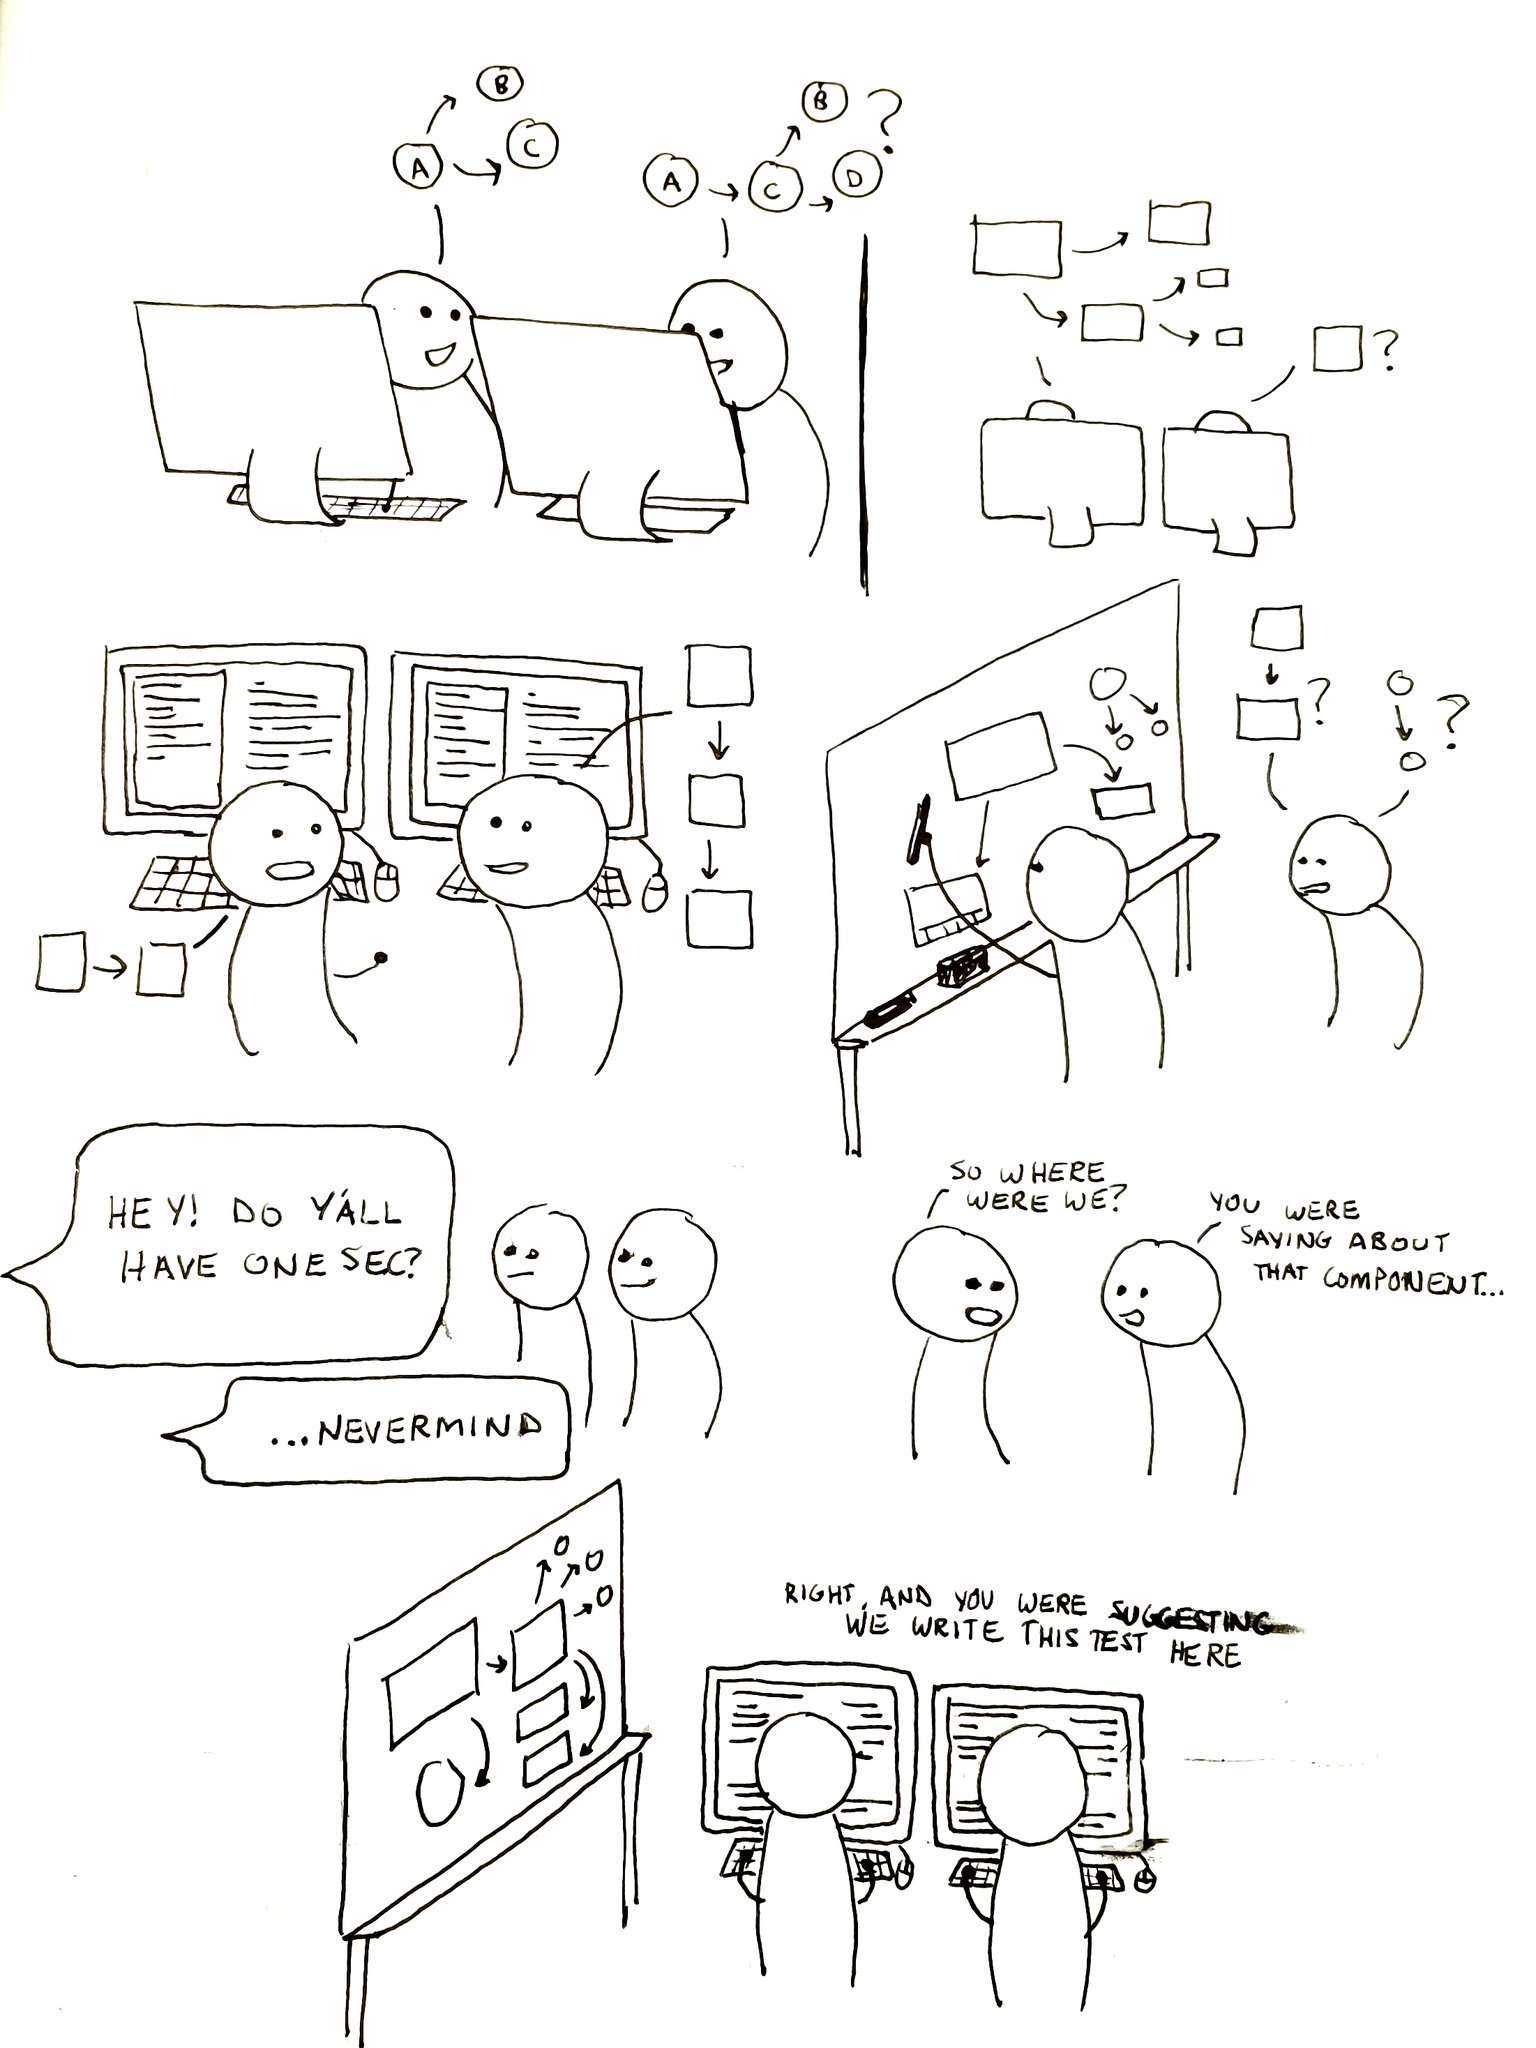 B
A
C
B
?
A
C
D
?
?
?
HEY! DO Y'ALL
HAVE ONE SEC?
...NEVERMIND
SO WHERE
WERE WE?
YOU WERE
SAYING ABOUT
THAT COMPONENT...
RIGHT, AND YOU WERE SUGGESTING
WE WRITE THIS TEST HERE